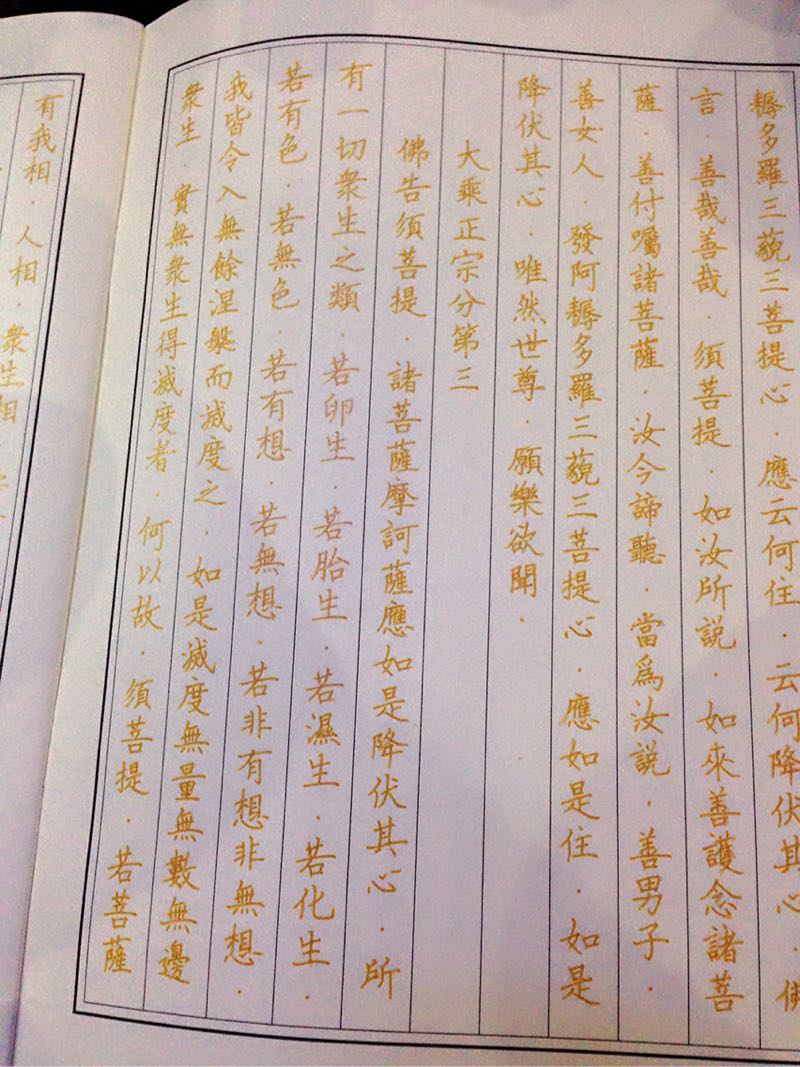 耨多羅三藐三菩提心．應云何住．云何降伏其心．佛
言．善哉善哉．須菩提．如汝所説．如來善護念諸菩
薩．善付囑諸菩薩．汝今諦聽．當爲汝説．善男子．
善女人．發阿耨多羅三藐三菩提心．應如是住．如是
降伏其心．唯然世尊．願樂欲聞．
大乘正宗分第三
佛告須菩提．諸菩薩摩訶薩應如是降伏其心．所
有一切衆生之類．若卵生．若胎生．若濕生．若化生．
若有色．若無色．若有想．若無想．若非有想非無想．
我皆令入無餘涅槃而滅度之．如是滅度無量無數無邊
衆生．實無衆生得滅度者．何以故．須菩提．若菩薩
有我相．人相．衆生相